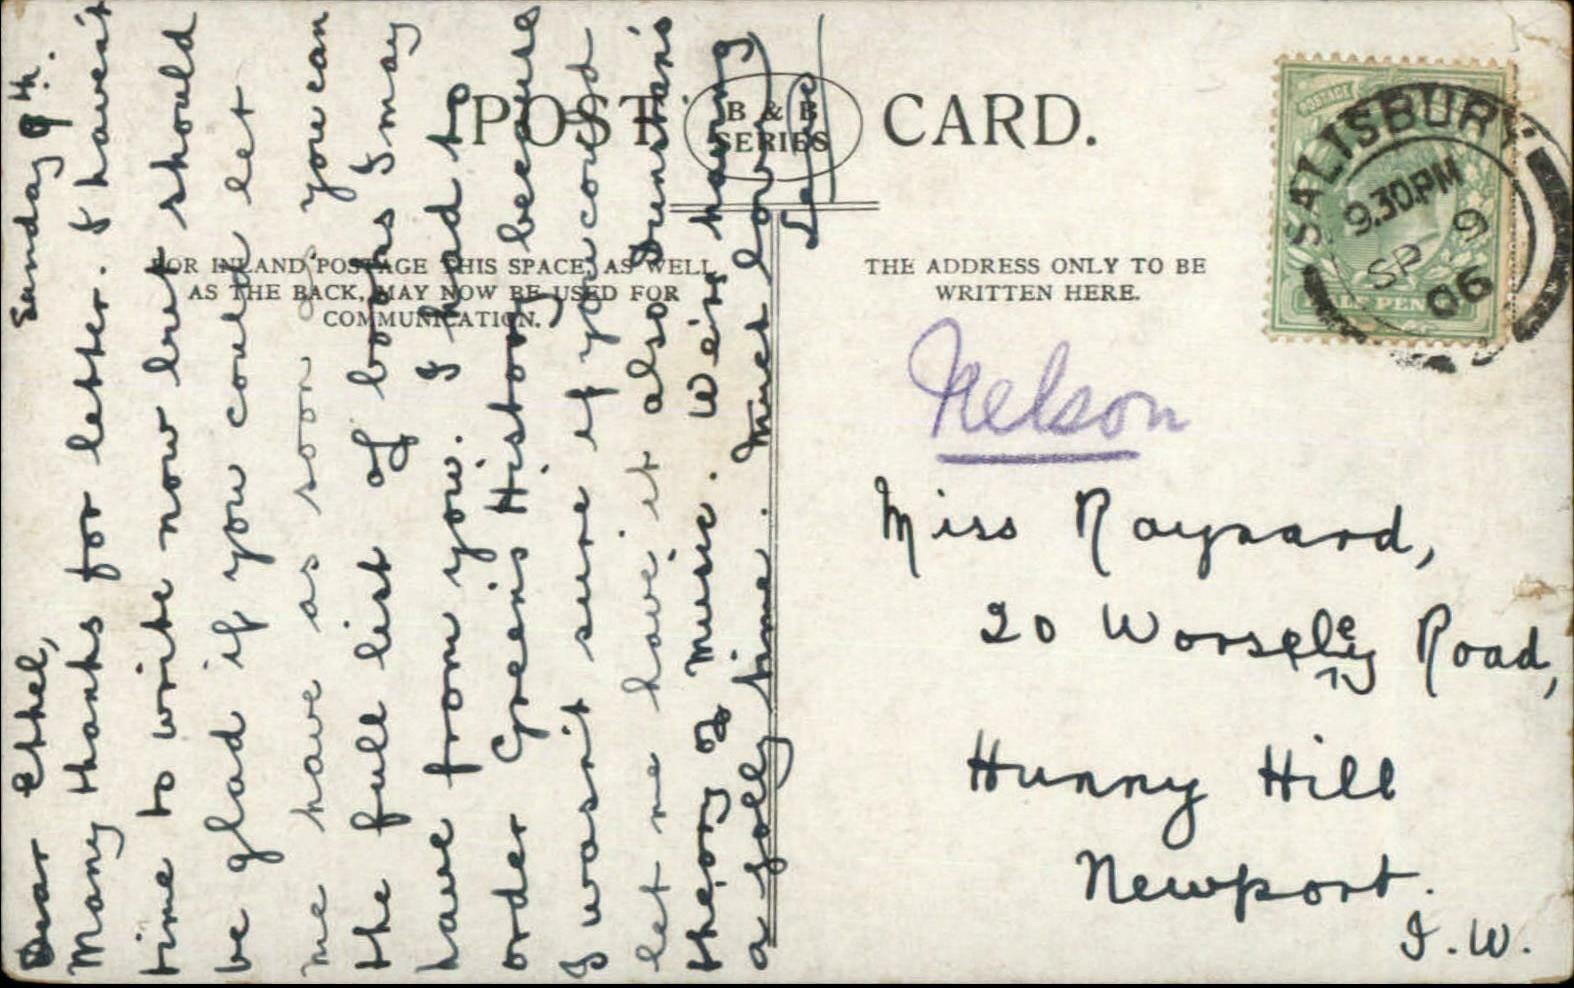 POST CARD.
B & B
SERIES
FOR INLAND POSTAGE THIS SPACE, AS WELL
AS THE BACK, MAY NOW BE USED FOR
COMMUNICATION.
THE ADDRESS ONLY TO BE
WRITTEN HERE.
POSTAGE
HALF PENNY
SALISBURY
9.30PM
SP 9
06
Sunday 9th.
Dear Ethel,
Many thanks for letter. I haven't
time to write now but should
be glad if you could let
me have as soon as you can
the full list of books I may
have from you. I had to
order Green's History because
I wasn't sure if you could
let me have it also Dunstan's
theory of music. We're having
a jolly time. Much love
Nelson
Miss Raynard,
20 Worseley Road,
Hunny Hill
Newport.
I.W.